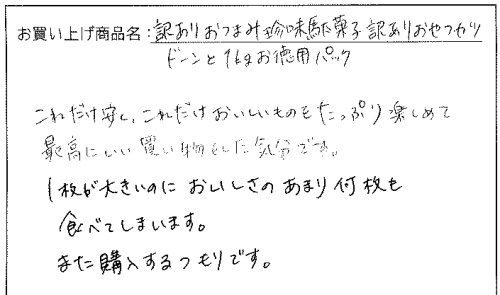 お買い上げ商品名:訳ありおつまみ珍味駄菓子訳ありおやつカツ
ドーンと1kgお徳用パック
これだけ安く、これだけおいしいものをたっぷり楽しめて
最高にいい買い物をした気分です。
1枚が大きいのにおいしさのあまり何枚も
食べてしまいます。
また購入するつもりです。